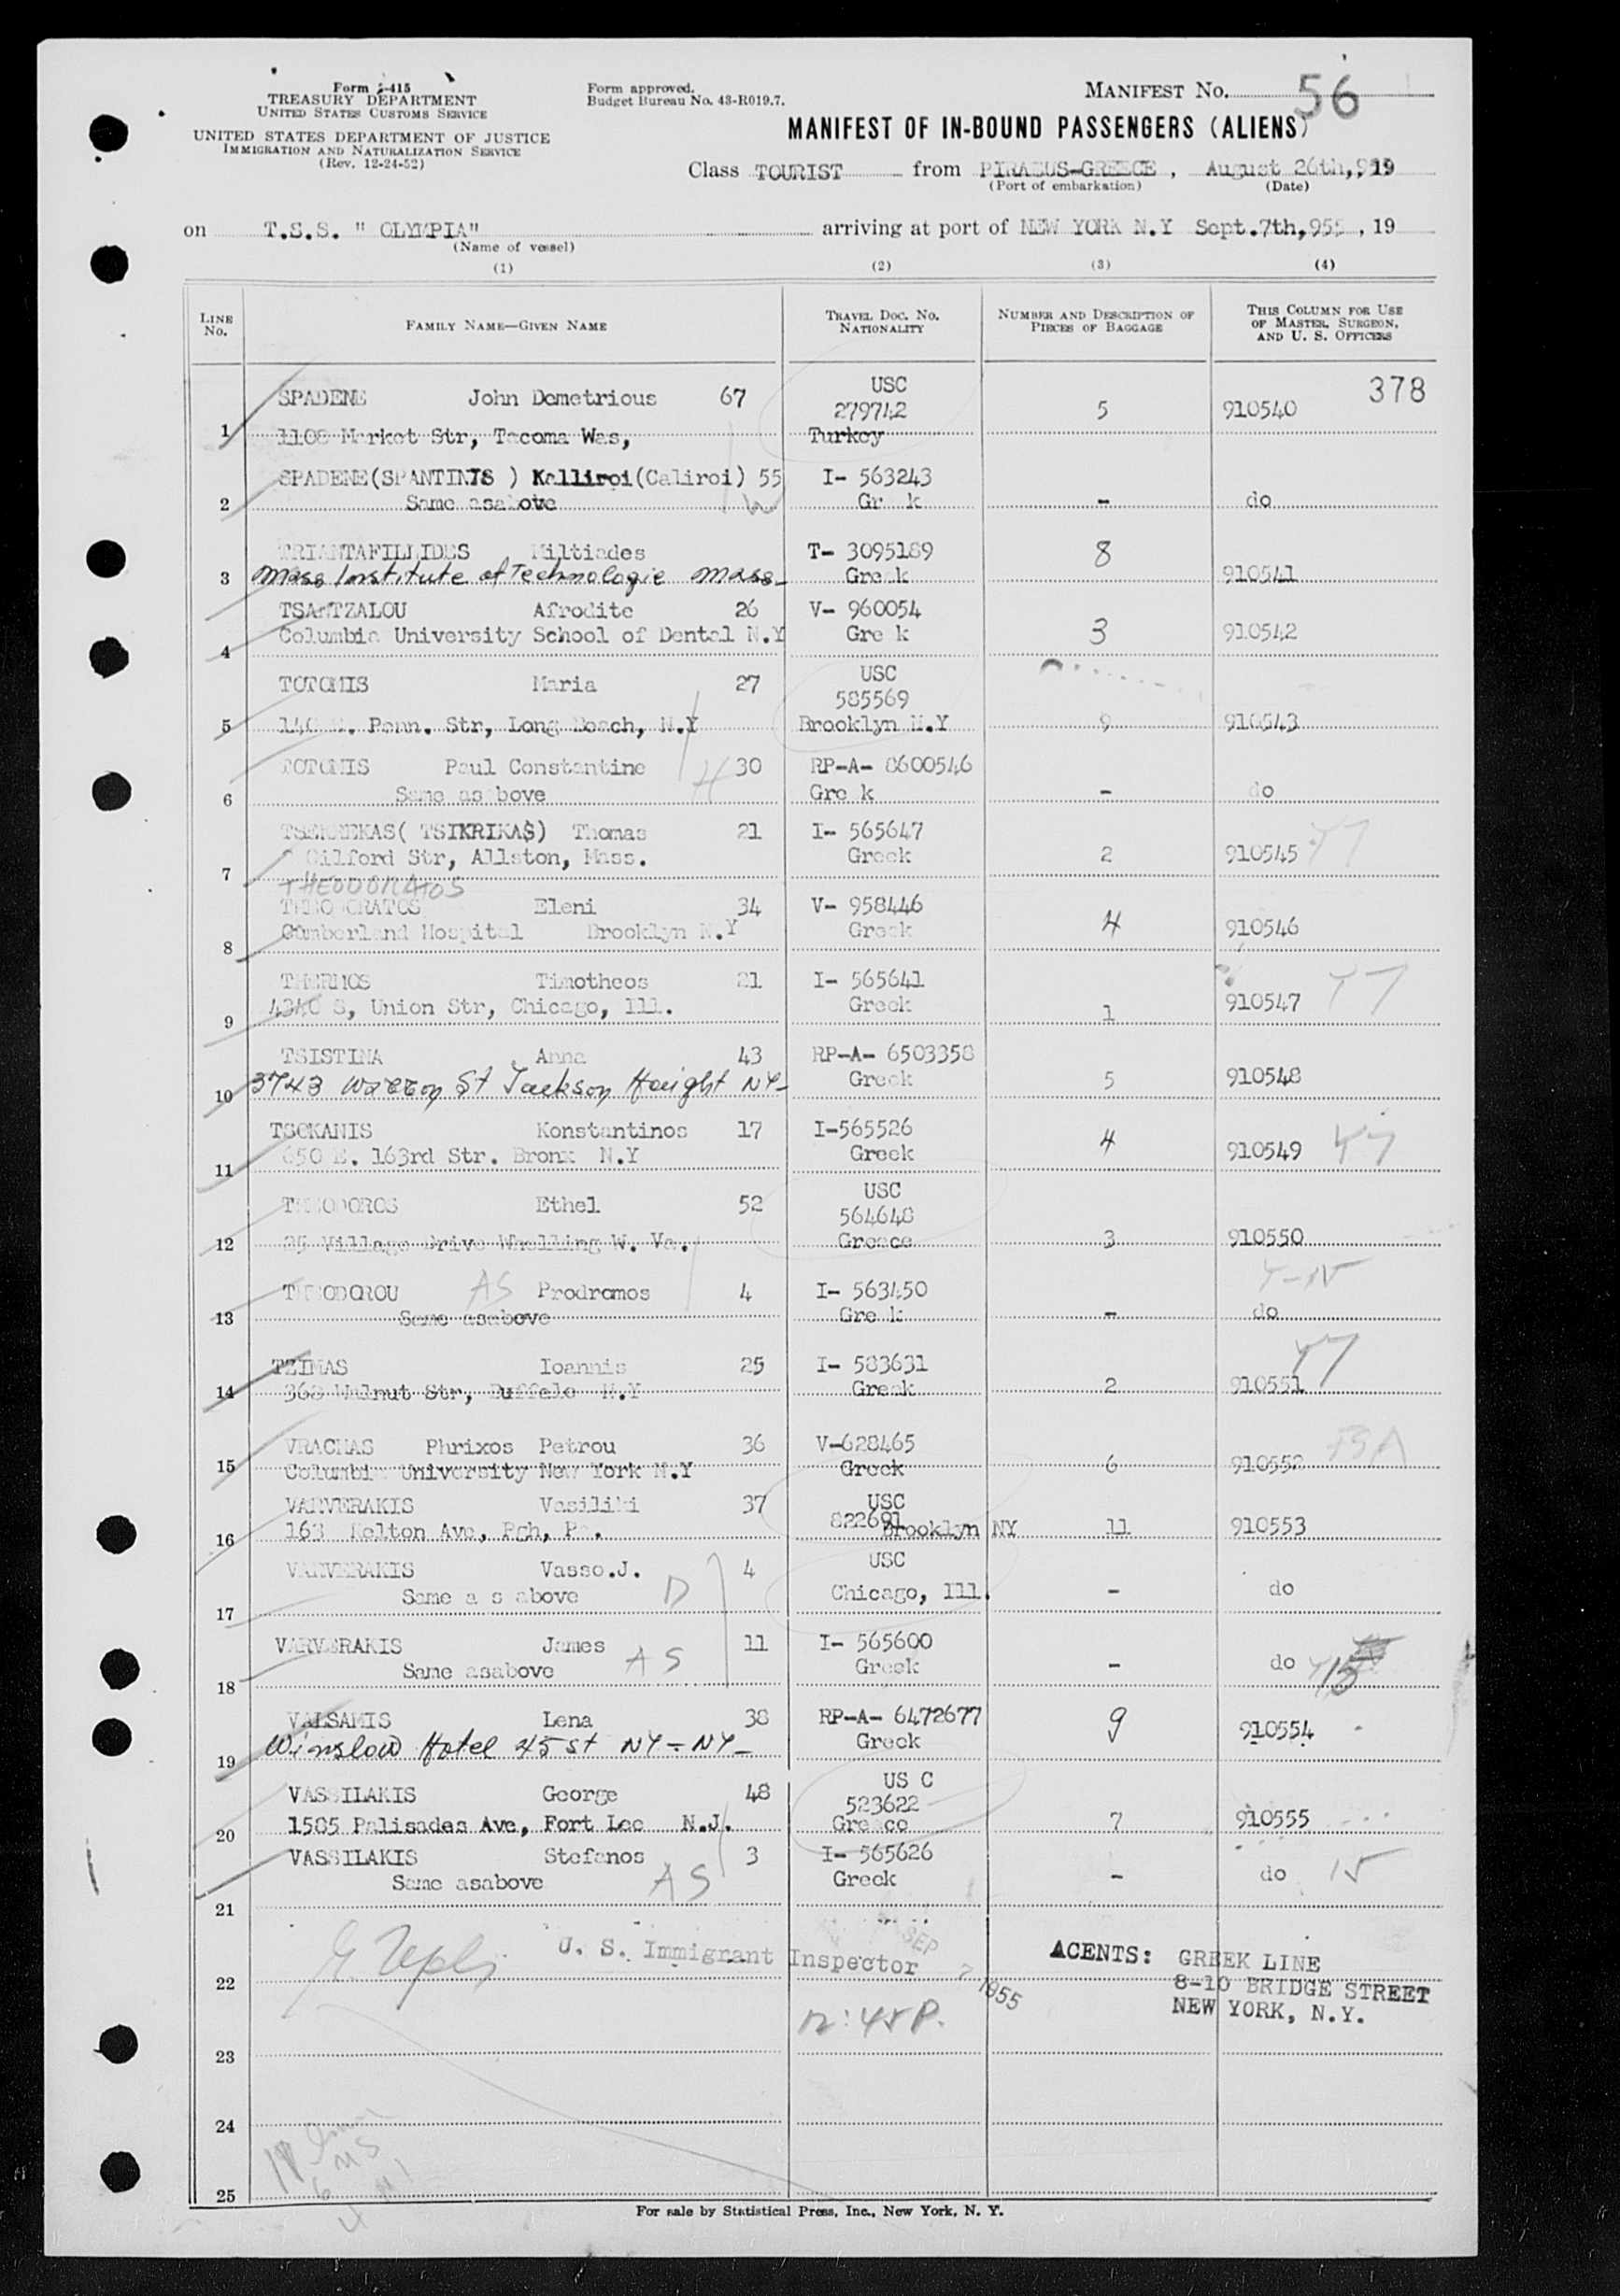 Form I-415
TREASURY DEPARTMENT
UNITED STATES CUSTOMS SERVICE
UNITED STATES DEPARTMENT OF JUSTICE
IMMIGRATION AND NATURALIZATION SERVICE
(Rev. 12-24-52)
Form approved.
Budget Bureau No. 43-R019.7.
MANIFEST No. 56
MANIFEST OF IN-BOUND PASSENGERS (ALIENS)
Class TOURIST from PIRAEUS-GREECE, August 26th, 19
(Port of embarkation) (Date)
on T.S.S. " OLYMPIA" arriving at port of NEW YORK N.Y Sept.7th,955, 19
(Name of vessel)
(1) (2) (3) (4)
LINE No. FAMILY NAME—GIVEN NAME TRAVEL DOC. NO. NATIONALITY NUMBER AND DESCRIPTION OF PIECES OF BAGGAGE THIS COLUMN FOR USE OF MASTER, SURGEON, AND U. S. OFFICERS
378
SPADENE John Demetrious 67 USC 279742 5 910540
1 1108 Market Str, Tacoma Was, Turkey
SPADENE(SPANTINIS ) Kalliroi(Caliroi) 55 I- 563243
2 Same asabove W Gr k - do
TRIANTAFILLIDES Miltiades T- 3095189 8
3 Mass Institute of Technologie Mass- Greek 910541
TSANTZALOU Afrodite 26 V- 960054
Columbia University School of Dental N.Y Gre k 3 910542
4
TOTOMIS Maria 27 USC 585569
5 140 . Penn. Str, Long Beach, N.Y Brooklyn N.Y 9 910543
TOTOMIS Paul Constantine 30 RP-A- 8600546
6 Same as bove H Gre k - do
(TSIKRIKAS) Thomas 21 I- 565647
Gilford Str, Allston, Mass. Greek 2 910545
7
THEODORATOS
Eleni 34 V- 958446 4
Cumberland Hospital Brooklyn N.Y Greek 910546
8
THERMOS Timotheos 21 I- 565641
S, Union Str, Chicago, Ill. Greek 1 910547
9
TSISTINA Anna 43 RP-A- 6503358
10 3743 Warren St Jackson Height NY- Greek 5 910548
TSOKANIS Konstantinos 17 I-565526 4
650 E. 163rd Str. Bronx N.Y Greek 910549
11
THEODOROS Ethel 52 USC 564648
12 Village Drive Whelling W. Va. Greece 3 910550
THEODOROU AS Prodromos 4 I- 563450
13 Same asabove Gre k - do
TZIMAS Ioannis 25 I- 583631
14 368 Walnut Str, Buffalo N.Y Greek 2 910551
VRACHAS Phrixos Petrou 36 V-628465
15 Columbia University New York N.Y Greek 6 910552
VARVERAKIS Vasiliki 37 USC 822691
16 163 Melton Ave, Pgh, Pa. Brooklyn NY 11 910553
VARVERAKIS Vasso.J. 4 USC
Same a s above D Chicago, Ill. - do
17
VARVERAKIS James 11 I- 565600
Same asabove AS Greek - do
18
VALSAMIS Lena 38 RP-A- 6472677 9
19 Winslow Hotel 45 St NY - NY- Greek 910554
VASSILAKIS George 48 US C 523622
20 1585 Palisades Ave, Fort Lee N.J. Greece 7 910555
VASSILAKIS Stefanos 3 I- 565626
Same asabove AS Greek - do 15
21
U. S. Immigrant Inspector
SEP 7 1955
12:45P.
AGENTS: GREEK LINE
8-10 BRIDGE STREET
NEW YORK, N.Y.
22
23
24
25
For sale by Statistical Press, Inc., New York, N. Y.